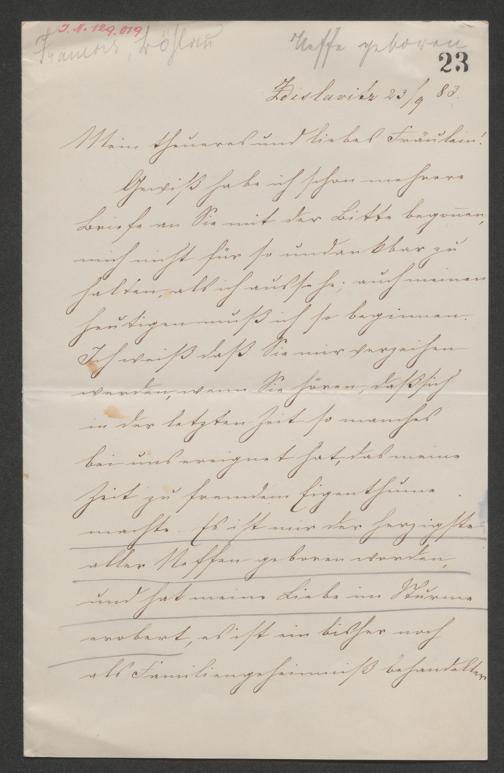 I.N. 129.019
François, Böhlau
Neffe geboren
23
Zdislavitz 23/9 83.
Mein theueres und liebes Fräulein!
Gewiß habe ich schon mehrere
Briefe an Sie mit der Bitte begonnen,
mich nicht für so undankbar zu
halten als ich aussehe; auch meinen
heutigen muß ich so beginnen.
Ich weiß daß Sie mir verzeihen
werden, wenn Sie hören, daß sich
in der letzten Zeit so manches
bei uns ereignet hat, das meine
Zeit zu fremdem Eigenthume
machte. Es ist mir der herzigste
aller Neffen geboren worden,
und hat meine Liebe im Sturme
erobert, es ist ein bisher noch
als Familiengeheimniß behandelter